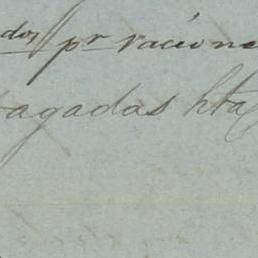 dos pr racione
pagadas hta